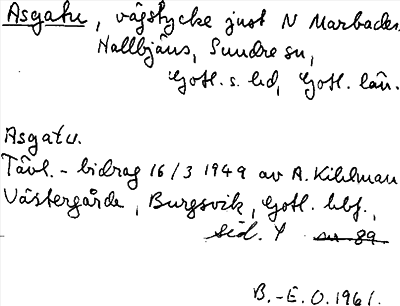 Asgatu, vägstycke just N Marbodes.
Hallbjäns, Sundre sn,
Gotl. s. hd, Gotl. län.
Asgatu.
Tävl.-bidrag 16/3 1949 av A. Kihlman
Västergårde, Burgsvik, Gotl. hbf.,
sid. 4 sn. 89
B.-E. O. 1961.